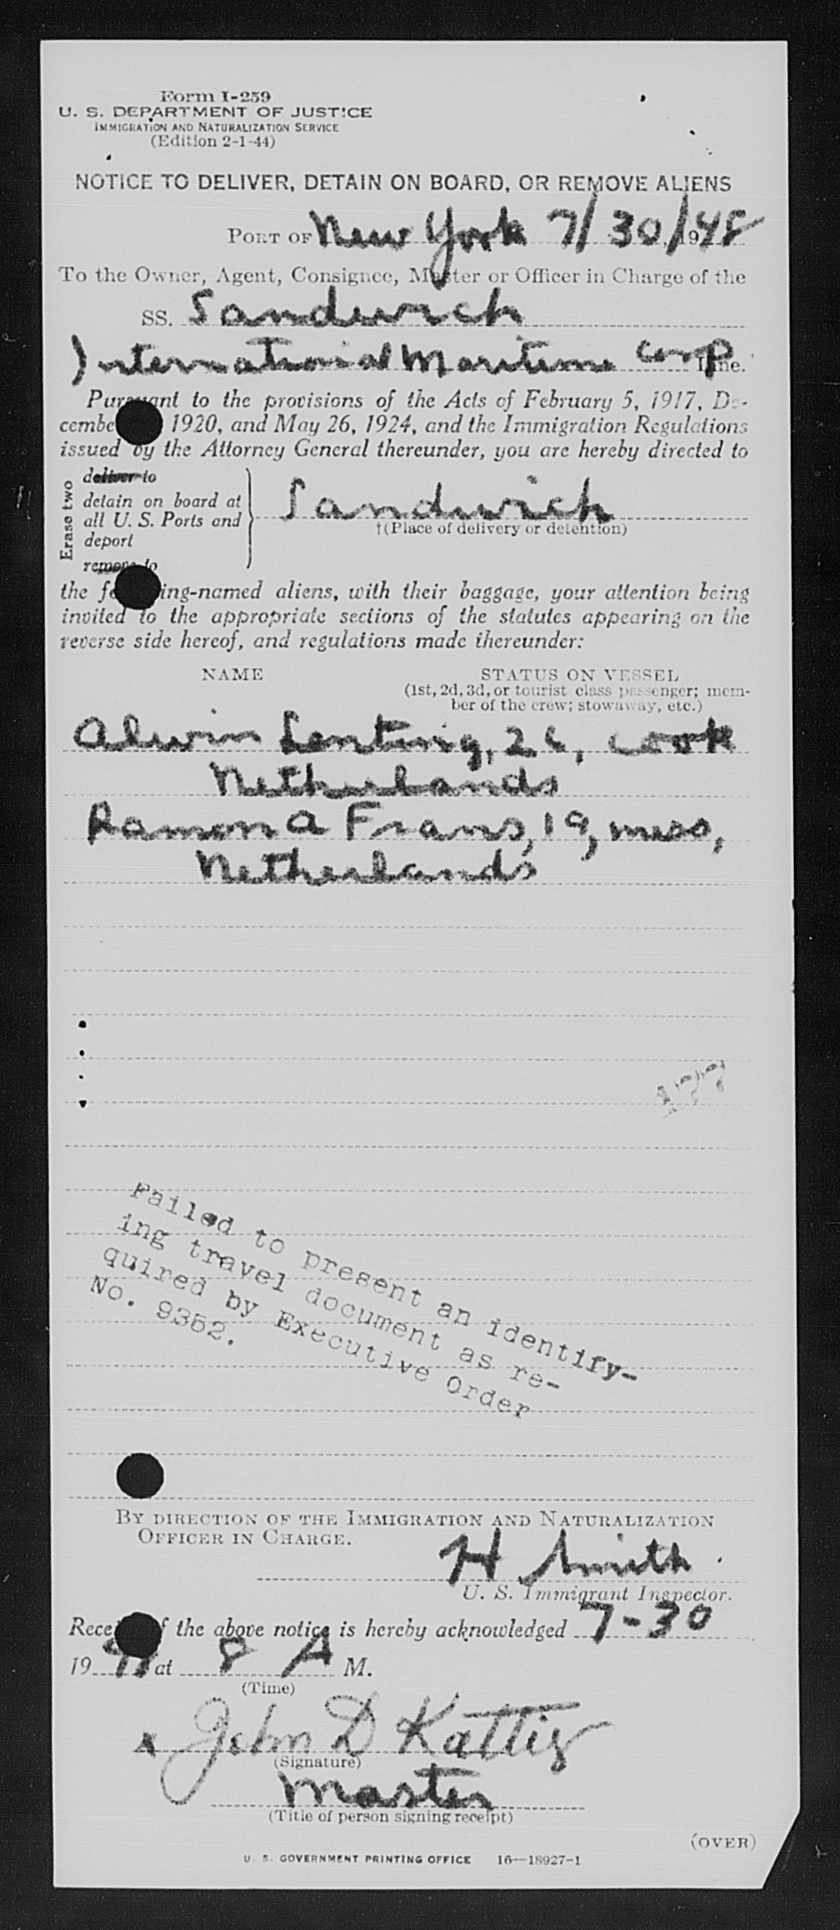 Form I-259
U. S. DEPARTMENT OF JUSTICE
IMMIGRATION AND NATURALIZATION SERVICE
(Edition 2-1-44)
NOTICE TO DELIVER, DETAIN ON BOARD, OR REMOVE ALIENS
PORT OF New York 7/30/1948
To the Owner, Agent, Consignee, Master or Officer in Charge of the
SS. Sandwich
International Maritime Corp Line.
Pursuant to the provisions of the Acts of February 5, 1917, De-
cembe 1920, and May 26, 1924, and the Immigration Regulations
issued by the Attorney General thereunder, you are hereby directed to
Erase two
deliver to
detain on board at
all U. S. Ports and
deport
remove to
Sandwich
†(Place of delivery or detention)
the f ing-named aliens, with their baggage, your attention being
invited to the appropriate sections of the statutes appearing on the
reverse side hereof, and regulations made thereunder:
NAME STATUS ON VESSEL
(1st, 2d, 3d, or tourist class passenger; mem-
ber of the crew; stowaway, etc.)
Alwin Lenting, 26, cook
Netherlands
Ramon A Frans, 19, mess,
Netherlands
177
Failed to present an identify-
ing travel document as re-
quired by Executive Order
No. 9352.
BY DIRECTION OF THE IMMIGRATION AND NATURALIZATION
OFFICER IN CHARGE.
H Smith
U. S. Immigrant Inspector.
Rece f the above notice is hereby acknowledged 7-30
19 at 8 A M.
(Time)
x John D Kattis
(Signature)
Master
(Title of person signing receipt)
(OVER)
U. S. GOVERNMENT PRINTING OFFICE 16—18927-1